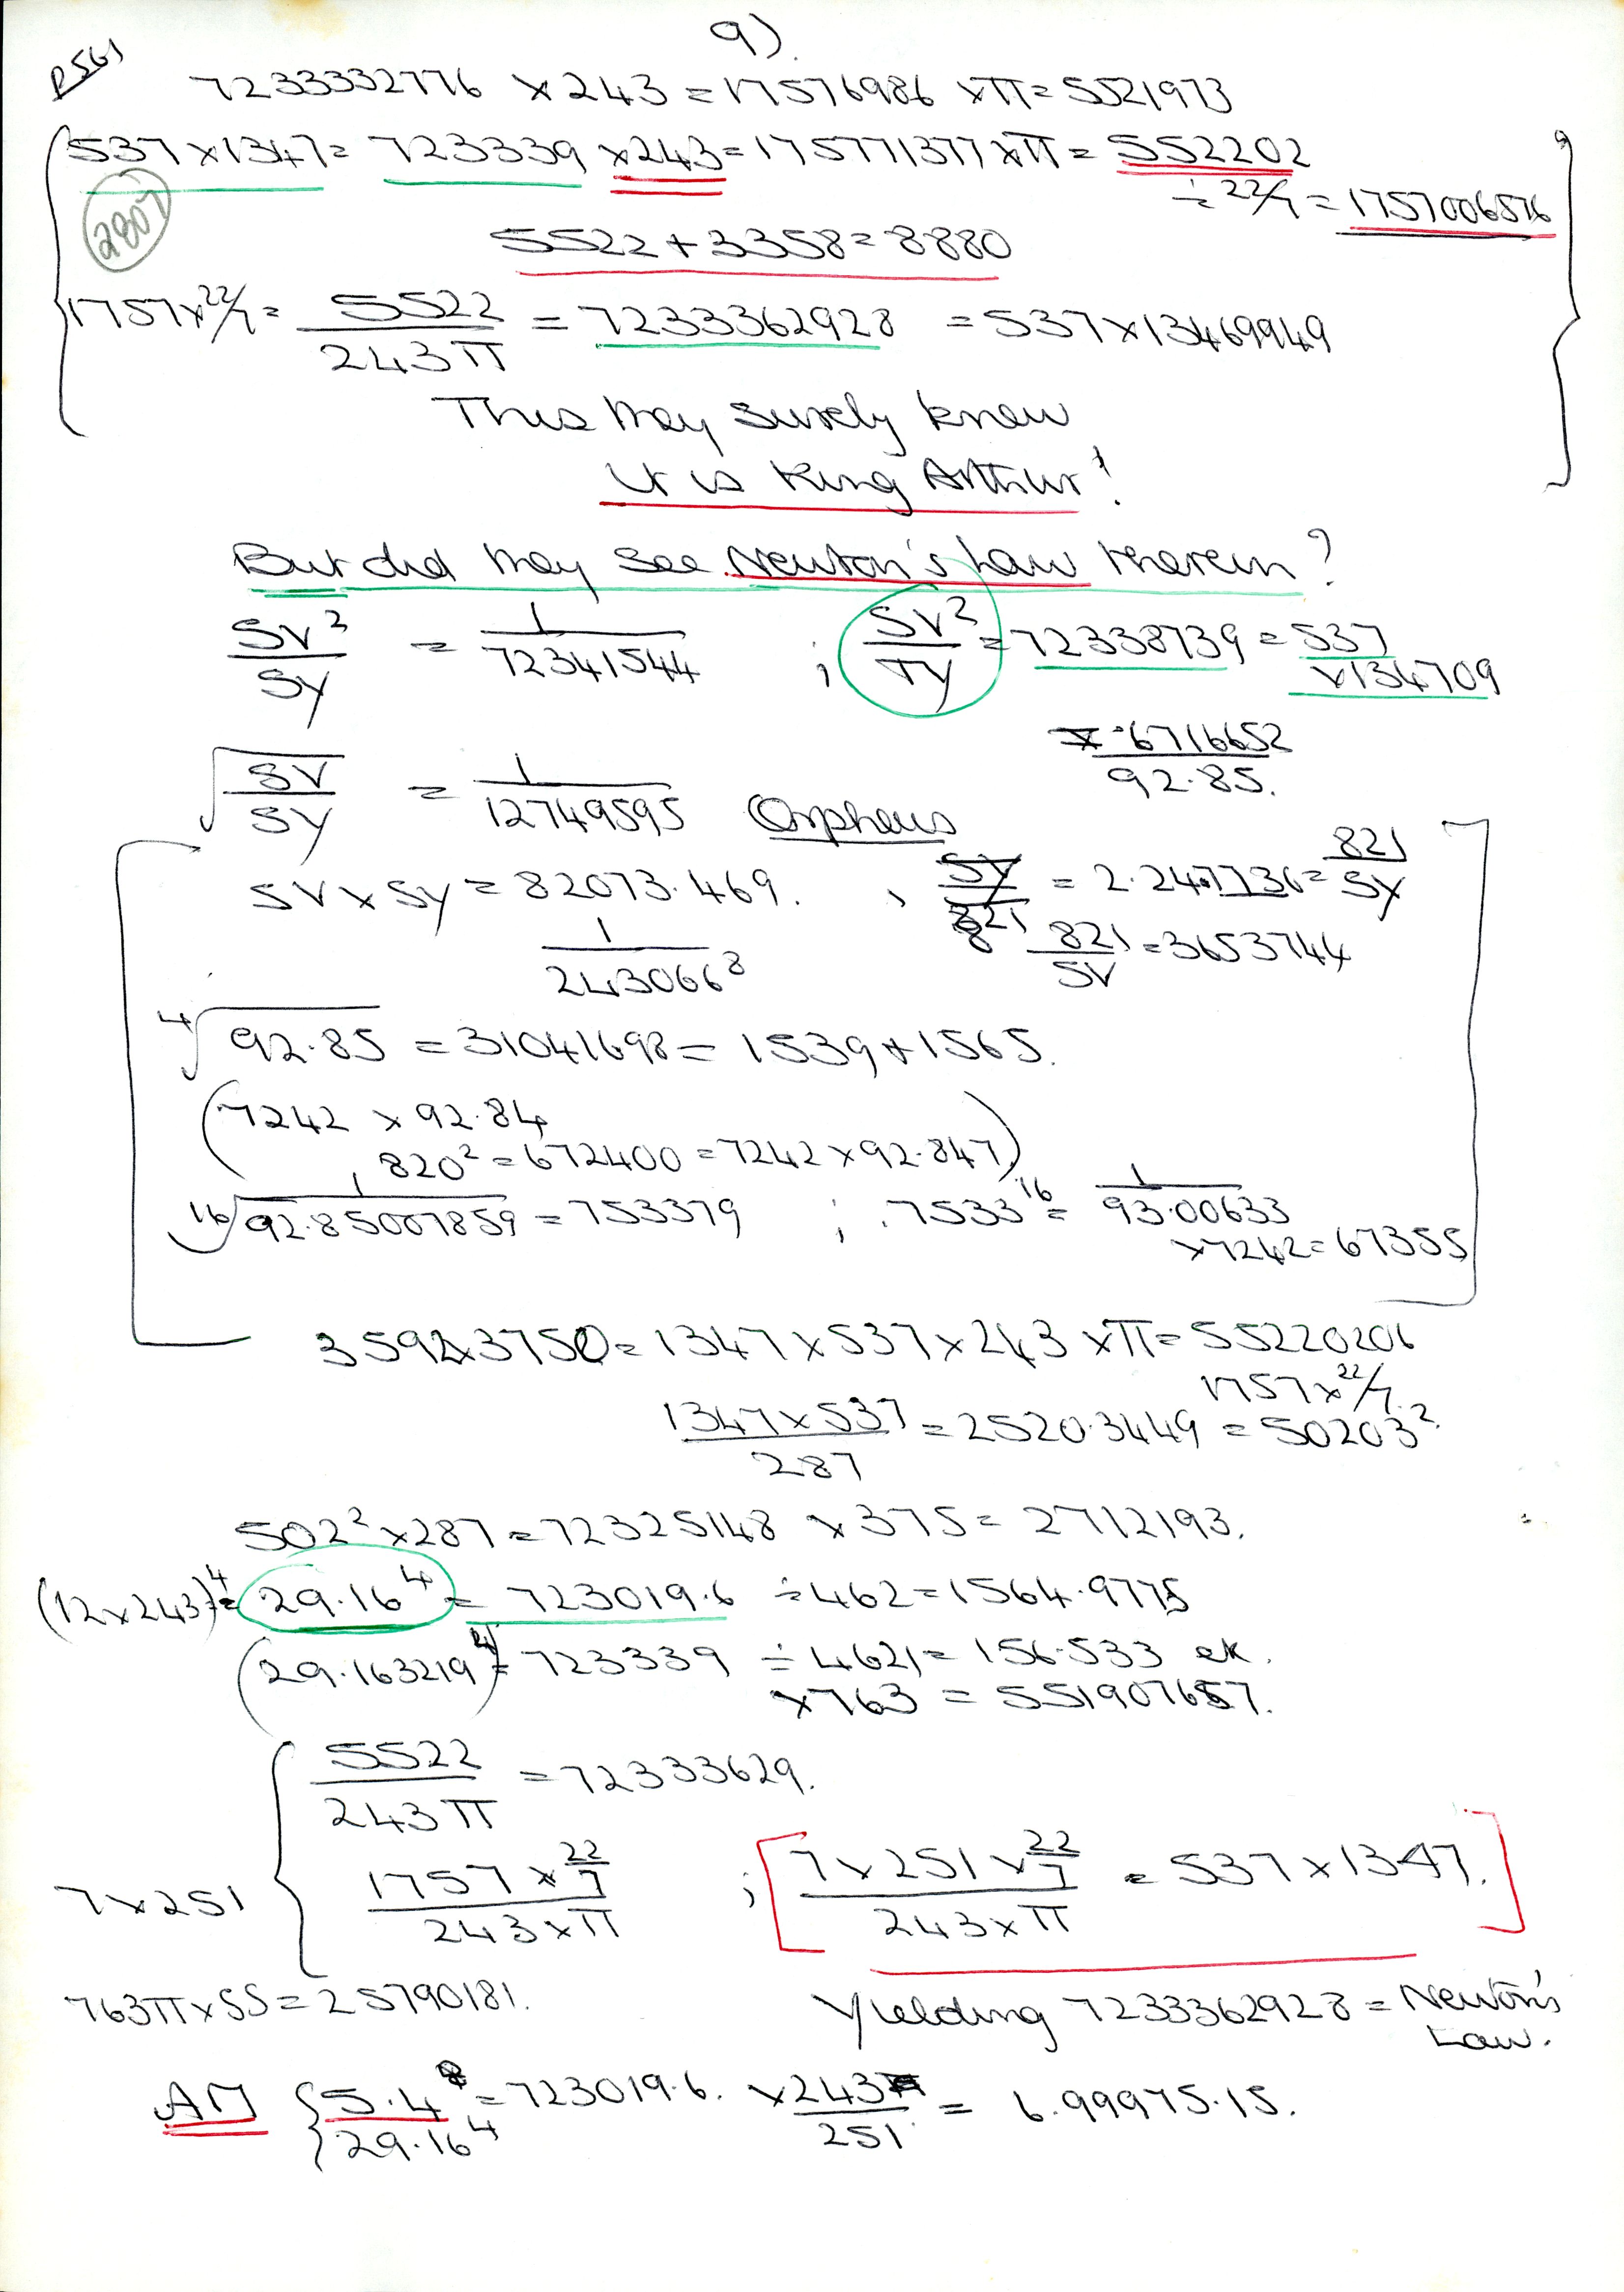 9)
P561
7233332776 × 243 = 17576986 × π = 5521973
537 × 1347 = 723339 × 243 = 175771377 × π = 552202
÷ 22/7 = 1757006576
2807
5522 + 3358 = 8880
1757 × 22/7 = 5522 / 243 π = 7233362928 = 537 × 13469949
This they surely knew
it is King Arthur!
But did they see Newton's Law therein?
SV² / SY = 1 / 72341544 ; SV² / TY = 72338739 = 537
× 134709
× ·6716652 / 92·85.
√ SV / SY = 1 / 12749595 Orpheus
SV × SY = 82073·469. , SY / 821 = 2·247736 = 821 / SY
1 / 243066⁸ 821 / SV = 3653744
⁴√ 92·85 = 31041698 = 1539 + 1565.
(7242 × 92·84
, 820² = 672400 = 7242 × 92·847)
¹⁶√ 1 / 92·85007859 = 753379 ; ·7533¹⁶ = 1 / 93·00633
× 7242 = 67355
3592 × 3750 = 1347 × 537 × 243 × π = 55220206
1757 × 22/7.
1347 × 537 / 287 = 2520·3449 = 50203²
502² × 287 = 72325148 × 375 = 2712193.
(12 × 243)⁴ = 29·16⁴ = 723019·6 ÷ 462 = 1564·9775
(29·163219)⁴ = 723339 ÷ 4621 = 156·533 ek.
× 763 = 551907657.
5522 / 243 π = 72333629.
7 × 251 { 1757 × 22/7 / 243 × π ; [ 7 × 251 × 22/7 / 243 × π = 537 × 1347. ]
763π × 55 = 25790181. Yielding 7233362928 = Newton's
Law.
AM { 5·4⁸ = 723019·6. × 243 / 251 = 6·99975·15.
29·16⁴